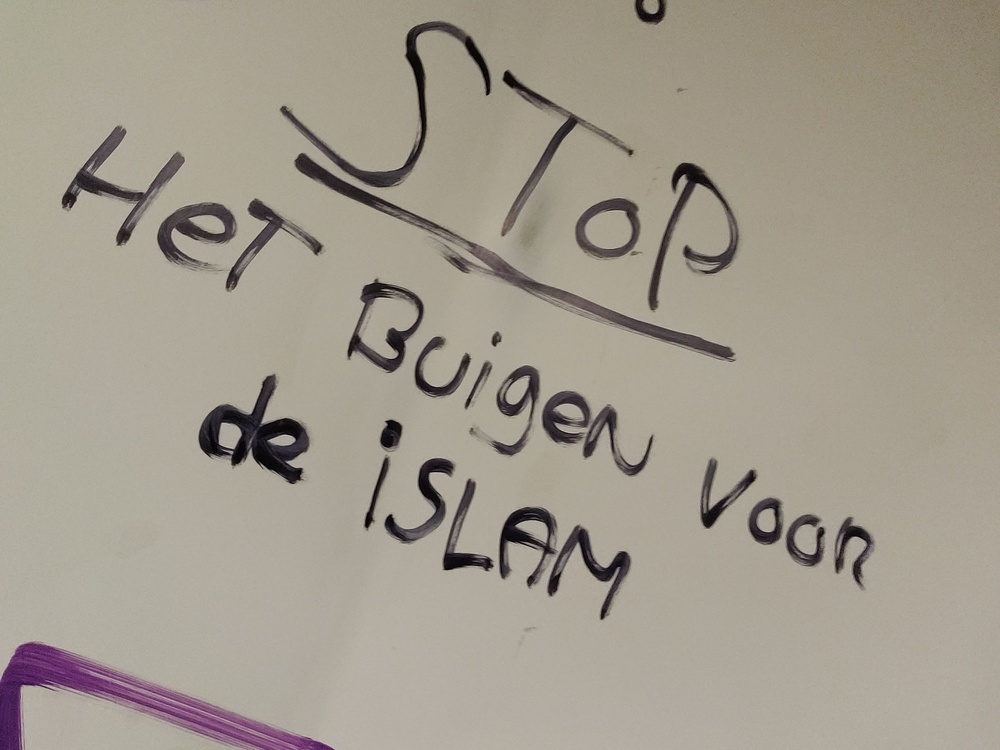 STOP
HeT Buigen voor
de iSLAM